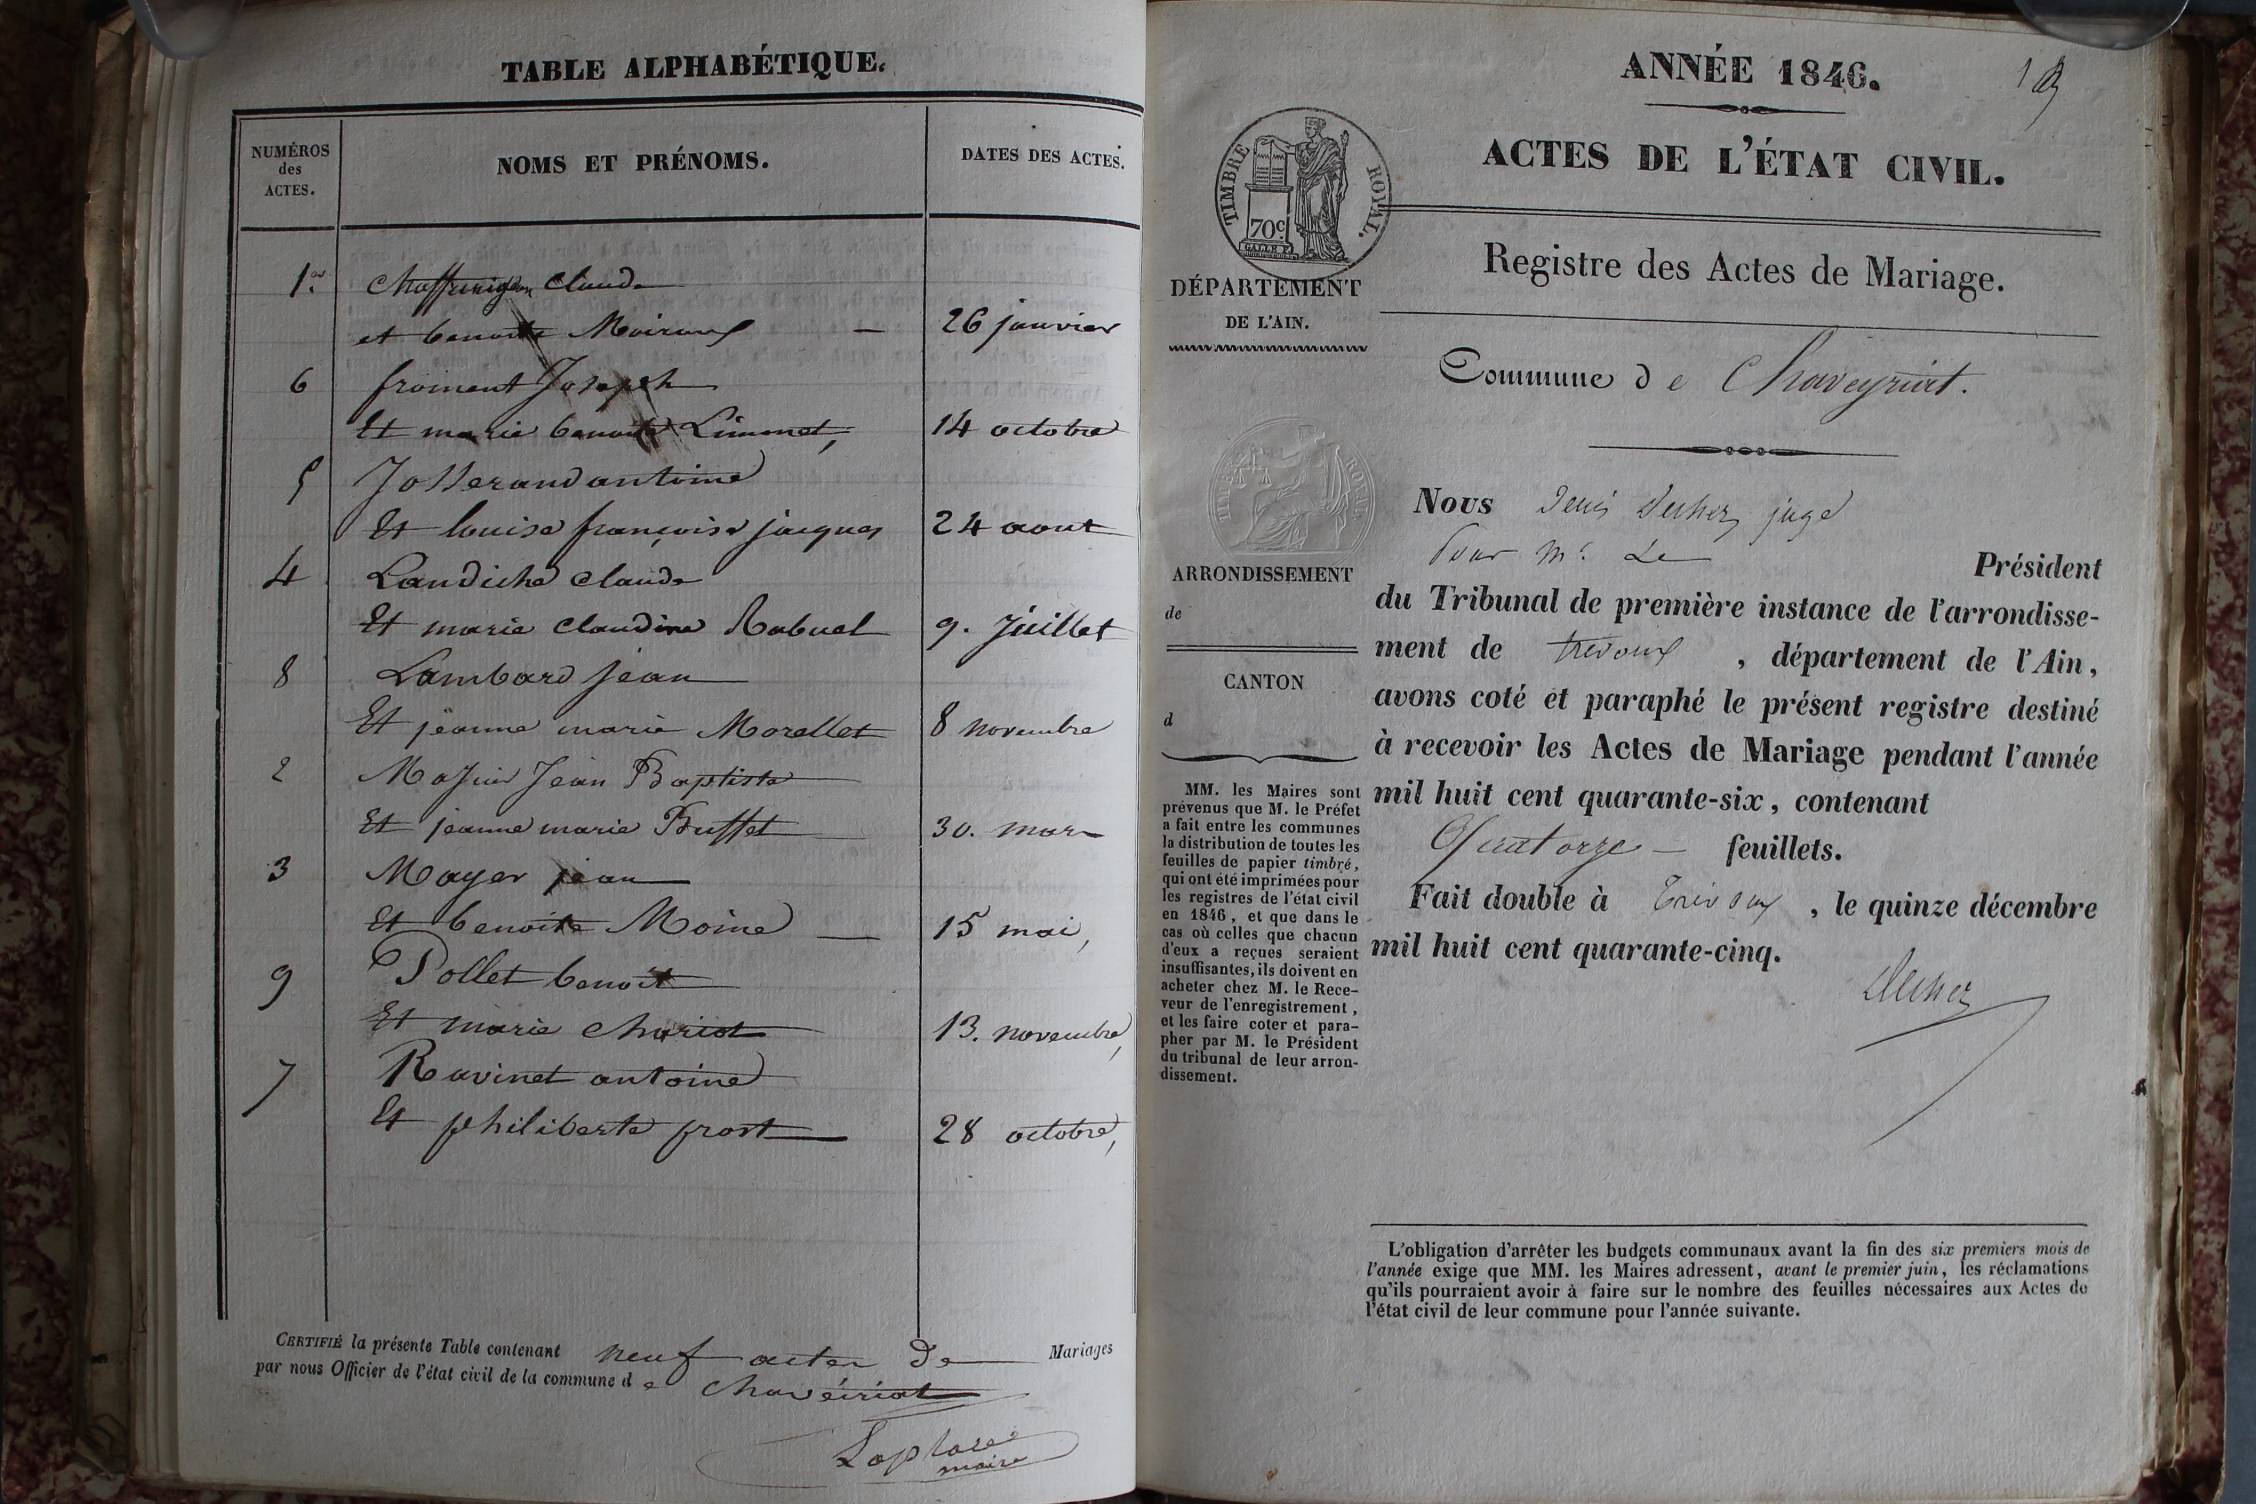 TABLE ALPHABÉTIQUE.
NUMÉROS
des
ACTES.
NOMS ET PRÉNOMS.
DATES DES ACTES.
1.er Claude
et benoite Moiroux — 26 janvier
6 froiment Joseph
Et marie benoite Limonet, 14 octobre
5 Josserand antoine
Et louise françoise jacques 24 aout
4 Landiche Claude
Et marie claudine Rabuel 9. Juillet
8 Lambard jean
Et jeanne marie Morellet 8 novembre
2 Jean Baptiste
Et jeanne marie Buffet 30. mars
3 Mayer jean
Et benoite Moine — 15 mai,
9 Pollet benoit
Et marie Chariot 13. novembre,
7 Ravinet antoine
Et philiberte prost 28 octobre,
CERTIFIÉ la présente Table contenant neuf actes de Mariages
par nous Officier de l'état civil de la commune de chaveiriat
maire
ANNÉE 1846.
ACTES DE L'ÉTAT CIVIL.
TIMBRE ROYAL.
70c.
Registre des Actes de Mariage.
DÉPARTEMENT
DE L'AIN.
Commune de Chaveyriat.
Nous Denis juge
Pour Mr. Le Président
du Tribunal de première instance de l'arrondisse-
ment de trévoux, département de l'Ain,
avons coté et paraphé le présent registre destiné
à recevoir les Actes de Mariage pendant l'année
mil huit cent quarante-six, contenant
Quatorze — feuillets.
Fait double à Trévoux, le quinze décembre
mil huit cent quarante-cinq.
ARRONDISSEMENT
de
CANTON
d
MM. les Maires sont
prévenus que M. le Préfet
a fait entre les communes
la distribution de toutes les
feuilles de papier timbré,
qui ont été imprimées pour
les registres de l'état civil
en 1846, et que dans le
cas où celles que chacun
d'eux a reçues seraient
insuffisantes, ils doivent en
acheter chez M. le Rece-
veur de l'enregistrement,
et les faire coter et para-
pher par M. le Président
du tribunal de leur arron-
dissement.
L'obligation d'arrêter les budgets communaux avant la fin des six premiers mois de
l'année exige que MM. les Maires adressent, avant le premier juin, les réclamations
qu'ils pourraient avoir à faire sur le nombre des feuilles nécessaires aux Actes de
l'état civil de leur commune pour l'année suivante.